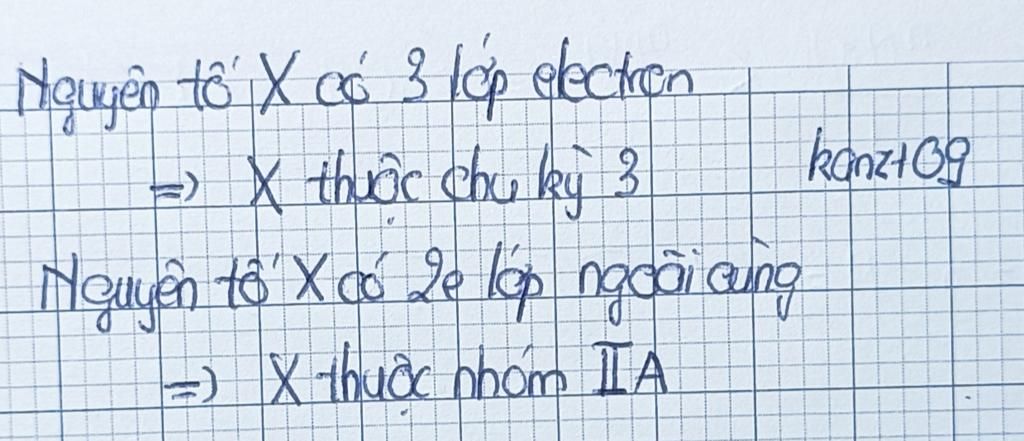 Nguyên tố X có 3 lớp electron
=> X thuộc chu kỳ 3
kanz+09
Nguyên tố X có 2e lớp ngoài cùng
=> X thuộc nhóm IIA